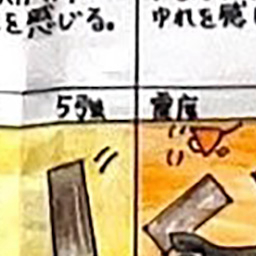 を感じる。
ゆれを感
5弱
震度